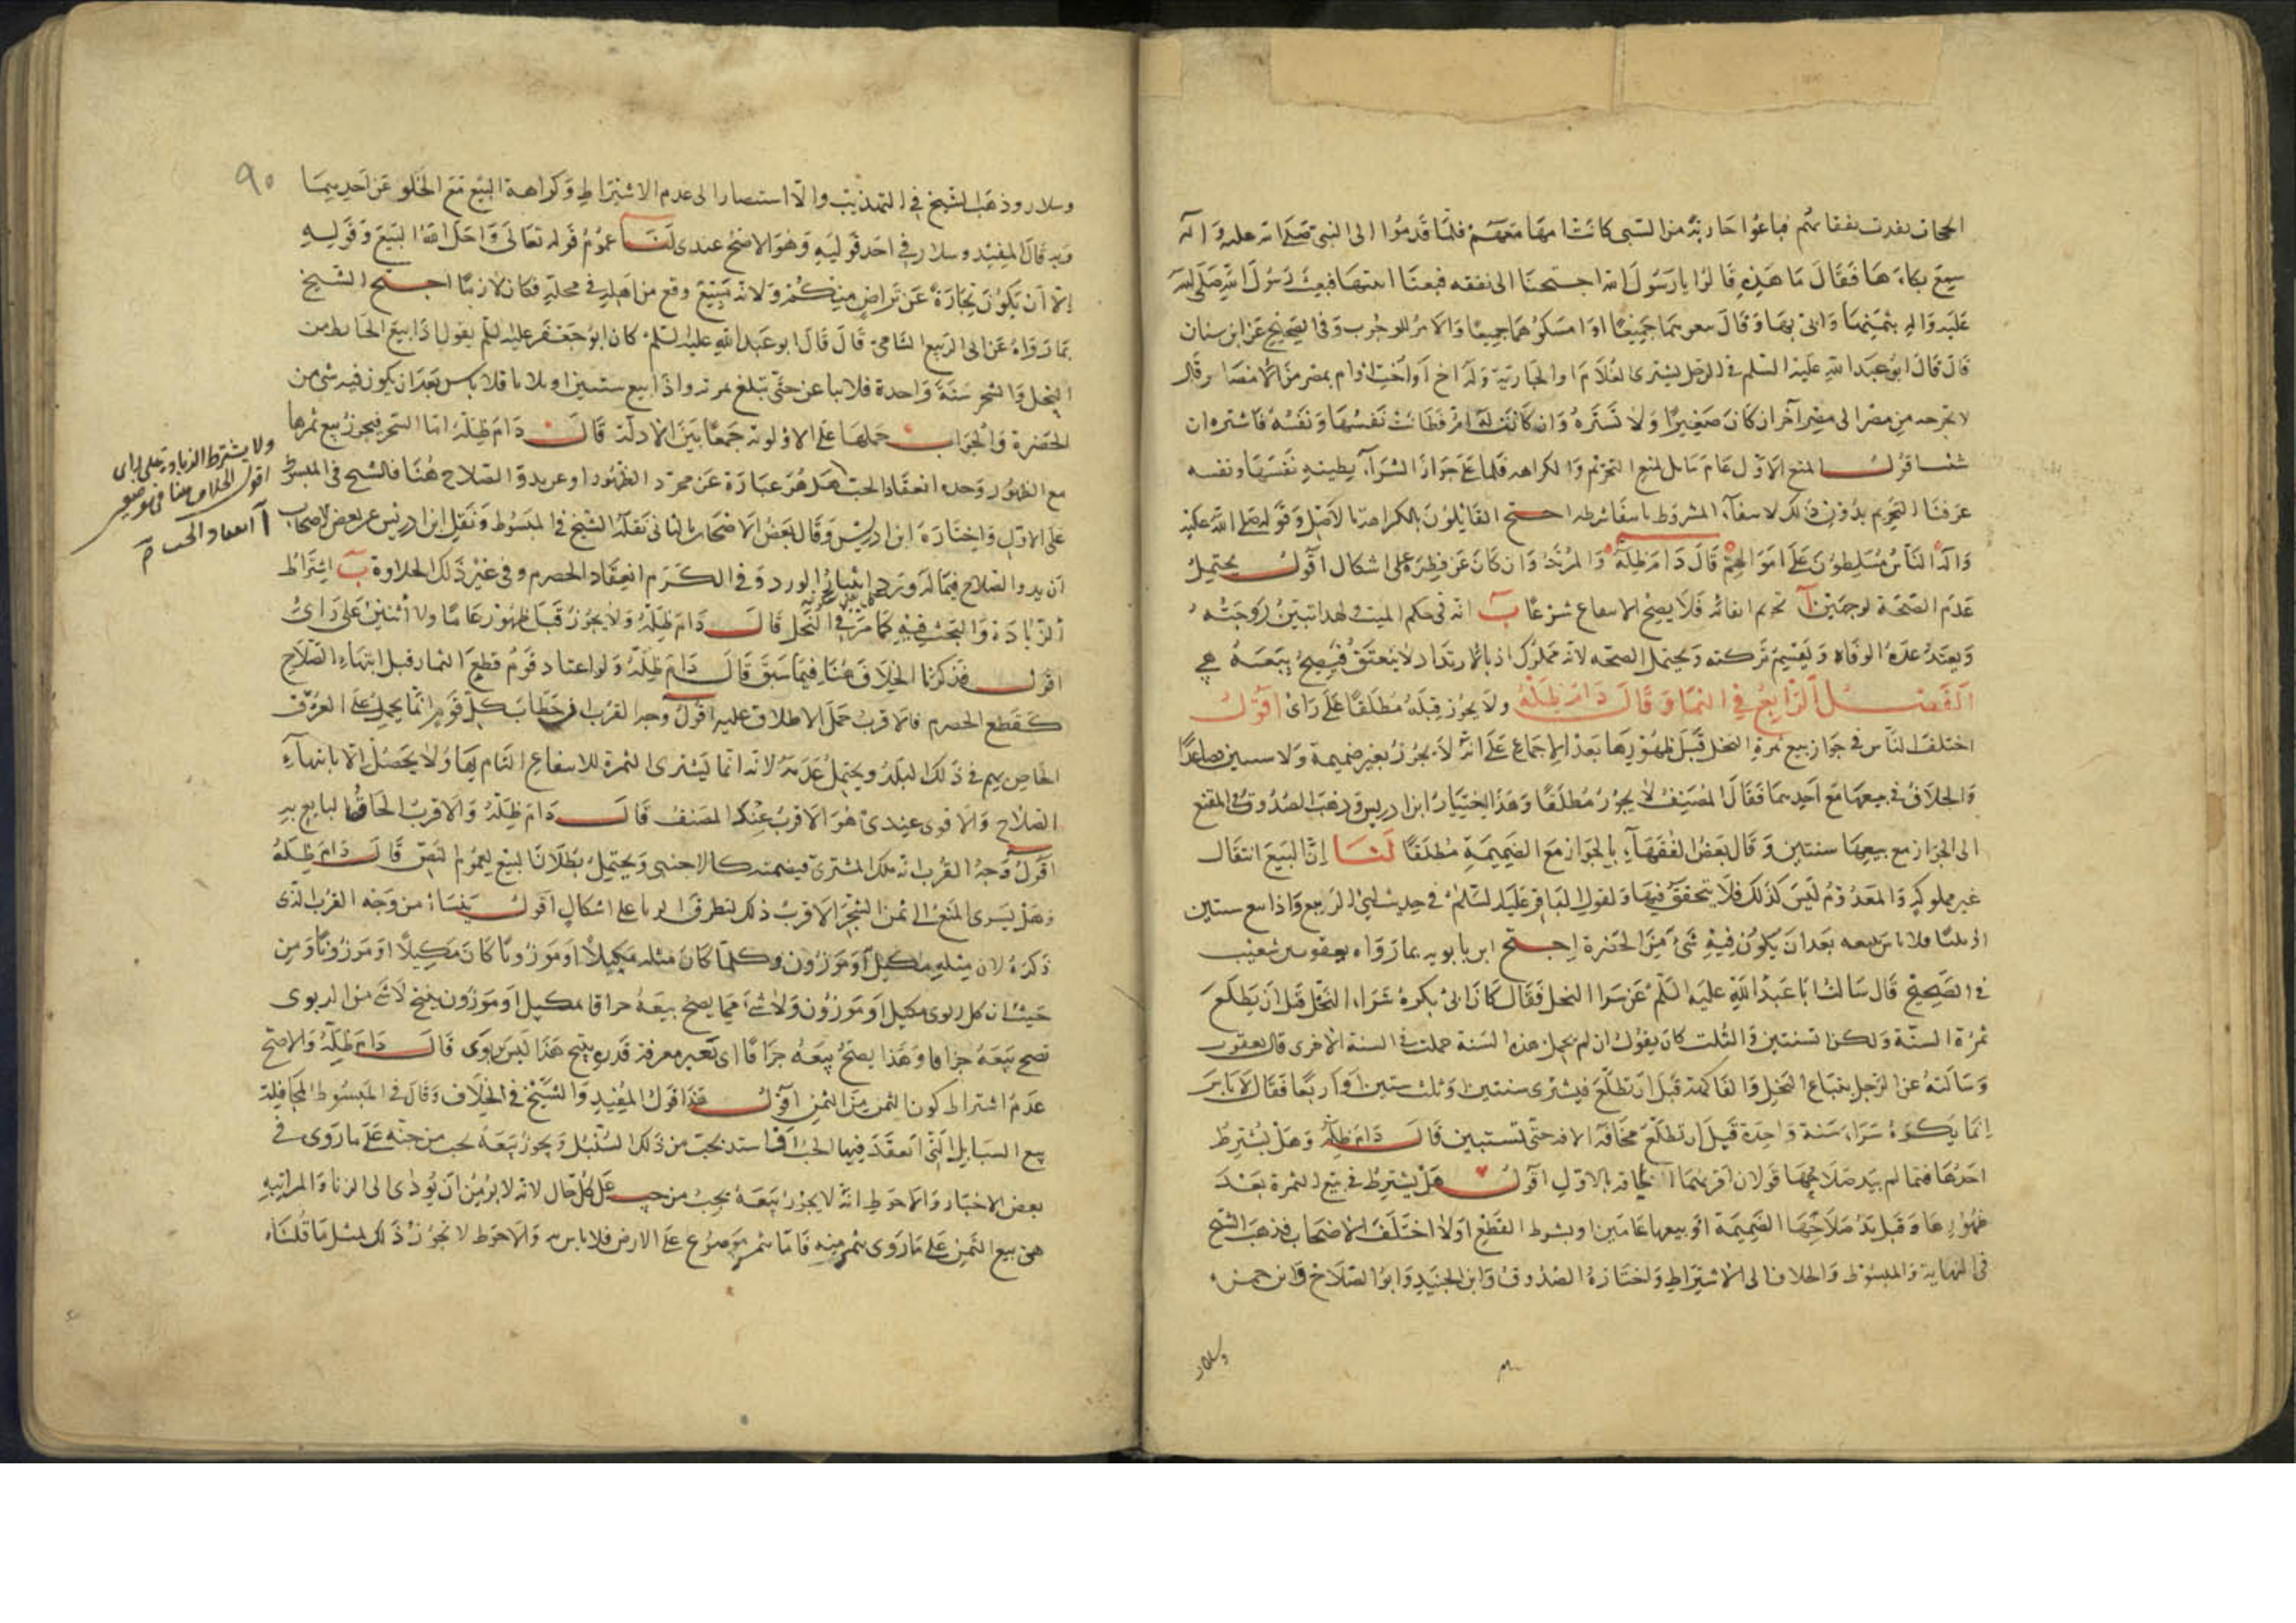 الجحفة نفدت نفقاتهم فباعوا جارية من السبى كانت امها معهم فلما قدموا الى النبى صلى الله عليه وآله
سمع بكاءها فقال ما هذه قالوا يا رسول الله احتجنا الى نفقة فبعنا ابنتها فبعث رسول الله صلى الله
عليه واله بثمنها واتى بها وقال بيعوهما جميعا او امسكوهما جميعا والامر للوجوب وفى الصحيح عن ابن سنان
قال قال ابو عبد الله عليه السلم فى الرجل يشترى الغلام او الجارية وله اخ او اخت او ام بمصر من الامصار قال
لا يخرجه من مصر الى مصر آخر ان كان صغيرا ولا تشتره وان كانت له ام فطابت نفسها ونفسه فاشتره ان
شئت اقول المنع الاول عام شامل لمنع التحريم والكراهه فلما على جواز الشراء بطيبة نفسها ونفسه
عرفنا التحريم بدون ذلك لانتفاء المشروط بانتفاء شرطه احتج القايلون بالكراهة بالاصل وقوله صلى الله عليه
وآله الناس مسلطون على اموالهم قال دام ظله والمرتد وان كان عن فطرة على اشكال اقول يحتمل
عدم الصحة لوجهين آ تحريم ابقائه فلا يصح الانتفاع شرعا ب انه فى حكم الميت ولهذا تبين زوجته
وتعتد عدة الوفاة وتقسم تركته ويحتمل الصحة لانه مملوك اذ بالارتداد لا ينعتق فيصح بيعه
الفصل الرابع في الثمار قال دام ظله ولا يجوز قبله مطلقا على راى اقول
اختلف الناس فى جواز بيع ثمرة النخل قبل ظهورها بعد الاجماع على انه لا يجوز بغير ضميمة ولا سنتين فصاعدا
والخلاف فى بيعها مع احديهما فقال المصنف لا يجوز مطلقا وهذا اختيار ابن ادريس وذهب الصدوق فى المقنع
الى الجواز مع بيعها سنتين وقال بعض الفقهاء بالجواز مع الضميمة مطلقا لنا ان البيع انتقال
غير مملوكه والمعدوم ليس كذلك فلا يتحقق فيها ولقول الباقر عليه السلم في حديث ابى الربيع واذا بيع سنتين
او ثلثا فلا باس ببيعه بعد ان يكون فيه شئ من الخضرة احتج ابن بابويه بما رواه يعقوب بن شعيب
فى الصحيح قال سالت ابا عبد الله عليه السلم عن شراء النخل فقال كان ابى يكره شراء النخل قبل ان يطلع
ثمرة السنة ولكن السنتين والثلث كان يقول ان لم يحمل هذه السنة حملت فى السنة الاخرى قال يعقوب
وسالته عن الرجل يبتاع النخل والفاكهة قبل ان تطلع فيشترى سنتين او ثلث سنين او اربعا فقال لا باس
انما يكره شراء سنة واحدة قبل ان تطلع مخافة الافة حتى تستبين قال دام ظله وهل يشترط
احدها فيما لم يبد صلاحها قولان اقربهما الحاقه بالاول اقول هل يشترط في بيع الثمرة بعد
ظهورها وقبل بدو صلاحها الضميمة او بيعها عامين او بشرط القطع اولا اختلف الاصحاب فذهب الشيخ
فى النهاية والمبسوط والخلاف الى الاشتراط واختاره الصدوق وابن الجنيد وابو الصلاح وابن حمزه
وسلار
وسلار وذهب الشيخ في التهذيب والاستبصار الى عدم الاشتراط وكراهة البيع مع الخلو عن احديهما
۹۰
وبه قال المفيد وسلار في احد قوليه وهو الاصح عندى لنا عموم قوله تعالى واحل الله البيع وقوله
الا ان يكون تجارة عن تراض منكم ولانه بيع وقع من اهله فى محله فكان لازما احتج الشيخ
بما رواه عن ابى الربيع الشامى قال قال ابو عبد الله عليه السلم كان ابو جعفر عليه السلم يقول اذا بيع الحايط من
النخل والشجر سنة واحدة فلا يباعن حتى تبلغ ثمرته واذا بيع سنتين او ثلاثا فلا باس بعد ان يكون فيه شئ من
الخضرة والجواب حملها على الاولوية جمعا بين الادلة قال دام ظله اما الشجر فيجوز بيع ثمرها
مع الظهور وحده انعقاد الحب هل هو عبارة عن مجرد الظهور او عن بدو الصلاح هنا فالشيخ فى المبسوط
ولا يشترط الزيادة على راى
اقول الخلاف هنا فى موضعين
آ انعقاد الحب
على الاول واختاره ابن ادريس وقال بعض الاصحاب بالثانى نقله الشيخ في المبسوط ونقل ابن ادريس عن بعض الاصحاب
ان بدو الصلاح فيما له ورد انتثار الورد وفى الكرم انعقاد الحصرم وفى غير ذلك الحلاوة ب اشتراط
الزيادة والبحث فيه كما مر في النخل قال دام ظله ولا يجوز قبل ظهوره عاما ولا اثنين على راى
اقول قد ذكرنا الخلاف هنا فيما سبق قال دام ظله ولو اعتاد قوم قطع الثمار قبل انتهاء الصلاح
كقطع الحصرم فالاقرب حمل الاطلاق عليه اقول وجه القرب ان خطاب كل قوم انما يحمل على العرف
الخاص بهم فى ذلك البلد ويحتمل عدمه لانه انما يشترى الثمرة للانتفاع التام بها ولا يحصل الا بانتهاء
الصلاح والاقوى عندى هو الاقرب عند المصنف قال دام ظله والاقرب الحاق البايع به
اقول وجه القرب انه ملك المشترى فيضمنه كالاجنبى ويحتمل بطلان البيع لعموم النص قال دام ظله
وهل يسرى المنع الى ثمن الشجر الاقرب ذلك لتطرق الربا على اشكال اقول ينشا من وجه القرب الذى
ذكره لان مثليه مكيل او موزون وكلما كان مثله مكيلا او موزونا كان مكيلا او موزونا ومن
حيث ان كل ربوى مكيل او موزون ولا شئ مما يصح بيعه جزافا بمكيل او موزون ينتج لا شئ من الربوى
يصح بيعه جزافا وهذا يصح بيعه جزافا اى بغير معرفة قدره ينتج هذا ليس بربوى قال دام ظله والاصح
عدم اشتراط كون الثمن من الثمن اقول هذا قول المفيد والشيخ فى الخلاف وقال في المبسوط المحاقلة
بيع السنابل التى انعقد فيها الحب واشتد بحب من ذلك السنبل ويجوز بيعه بحب من جنسه على ما روى فى
بعض الاخبار والاحوط انه لا يجوز بيعه بحب من جنسه على كل حال لانه لا يؤمن ان يؤدى الى الربا والمزابنة
هى بيع الثمر على ما روى بثمر منه فاما بثمر موضوع على الارض فلا باس به والاحوط لا يجوز ذلك لمثل ما قلناه